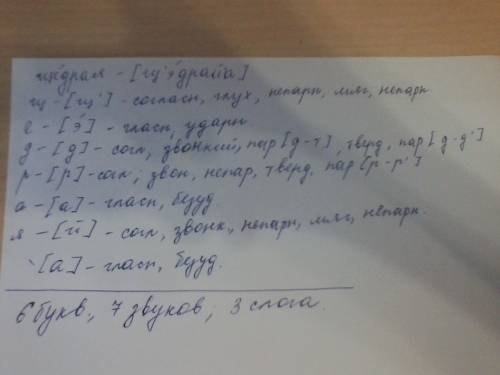 щедрая - [щ'э́драйа]
щ - [щ'] - согласн, глух, непарн, мягк, непарн
е - [э́] - гласн, ударн
д - [д] - согл, звонкий, пар [д-т], тверд, пар [д-д']
р - [р] - согл, звон, непар, тверд, пар [р-р']
а - [а] - гласн, безуд.
я - [й] - согл, звонк, непарн, мягк, непарн.
\[а] - гласн, безуд.
6 букв, 7 звуков, 3 слога.